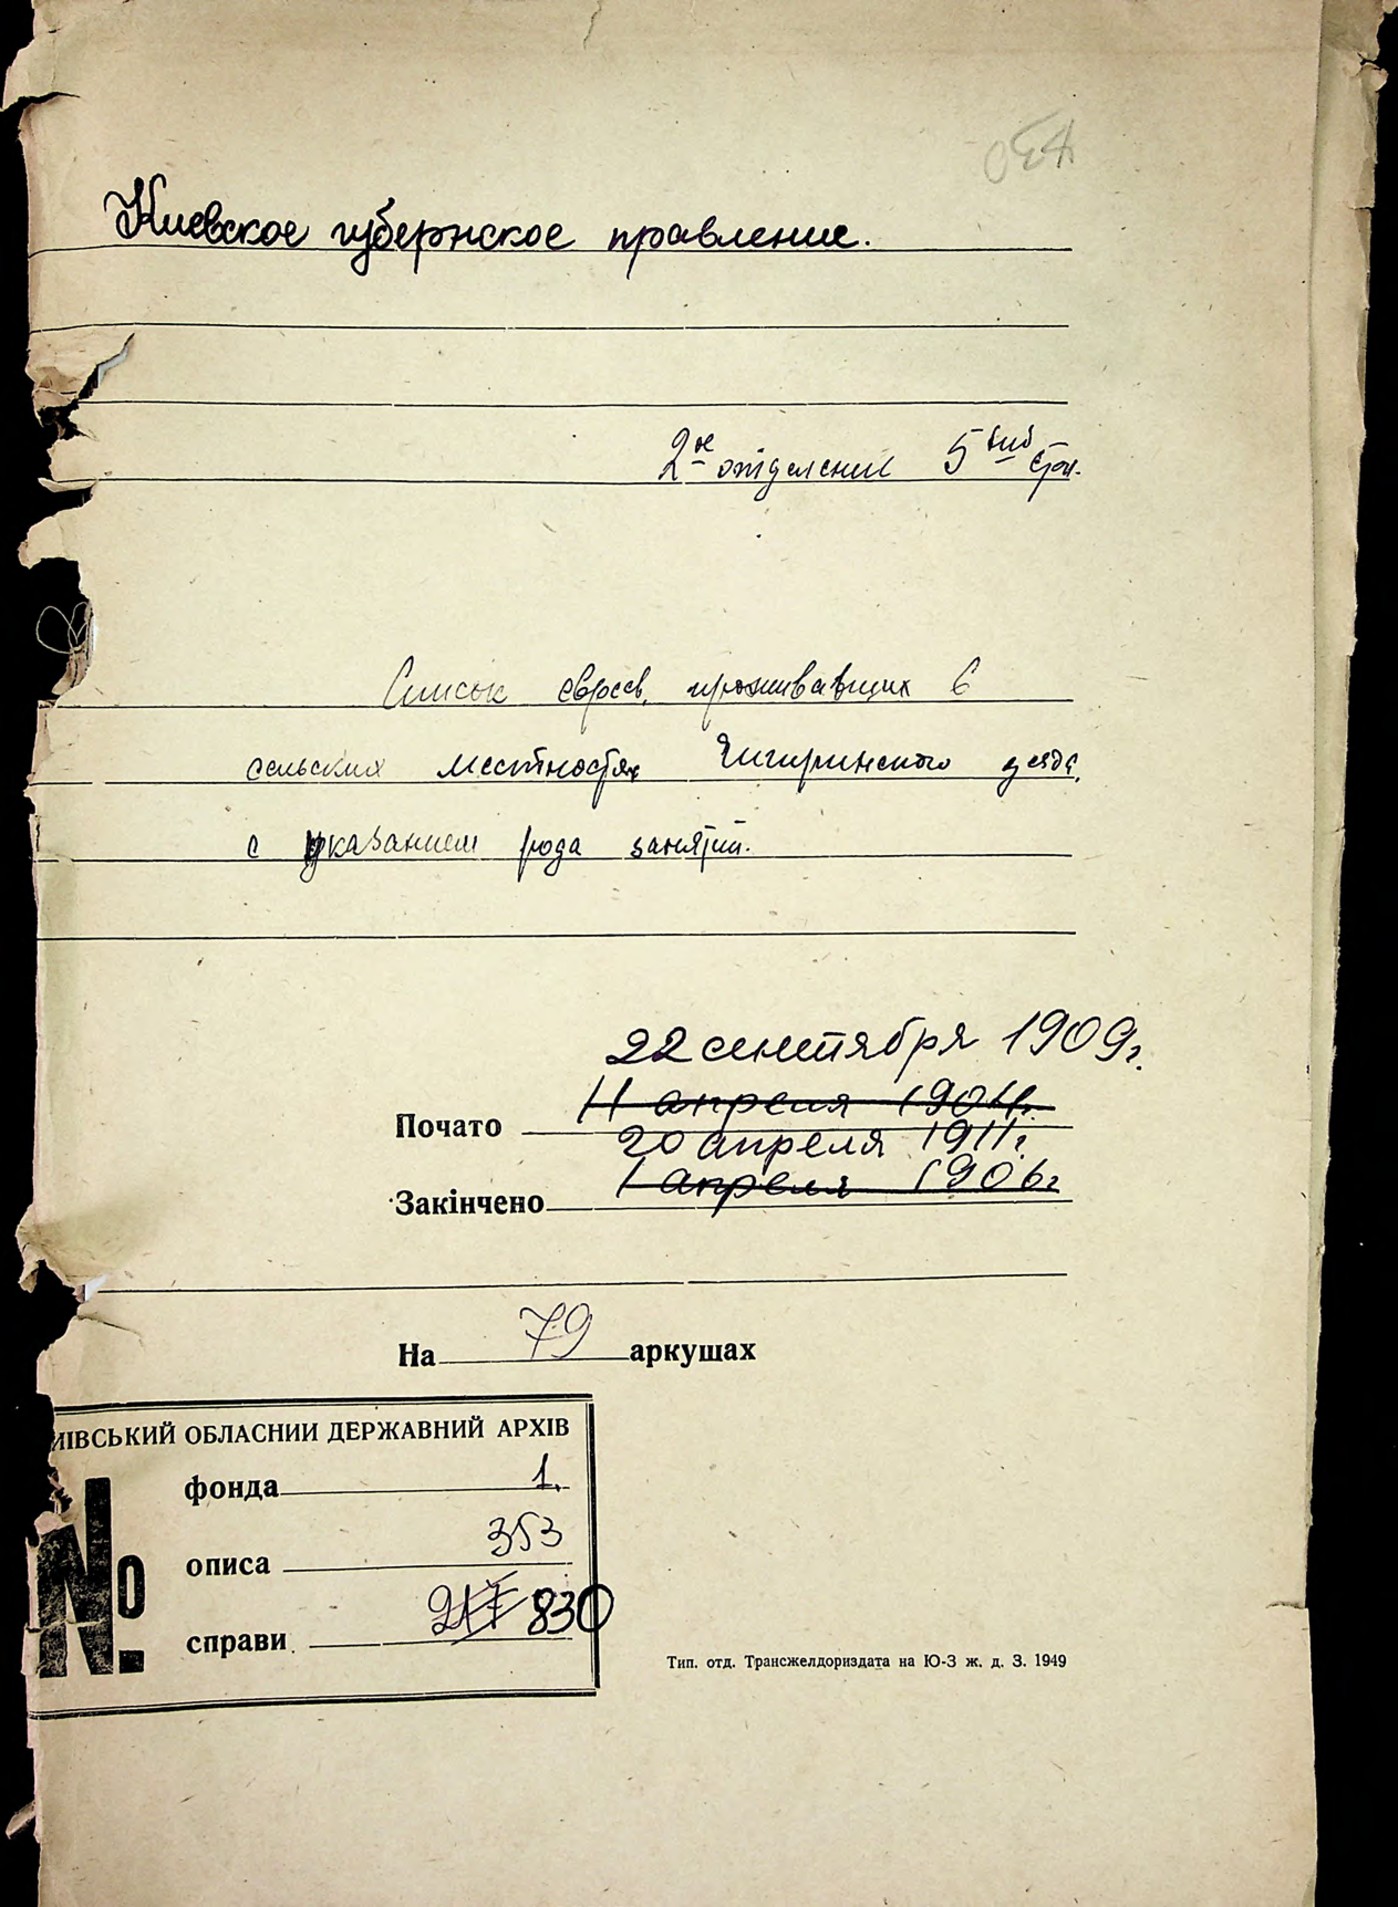 Киевское губернское правление.
2ое отделение 5ый стол.
Список евреев, проживавших в
сельских местностях Чигиринского уезда,
с указанием рода занятий.
22 сентября 1909г.
11 апреля 1901г.
Почато
20 апреля 1911г.
1 апреля 1906г
Закінчено
На 79 аркушах
ИЇВСЬКИЙ ОБЛАСНИИ ДЕРЖАВНИЙ АРХІВ
№
фонда 1.
описа 353
справи 830
Тип. отд. Трансжелдориздата на Ю-З ж. д. З. 1949